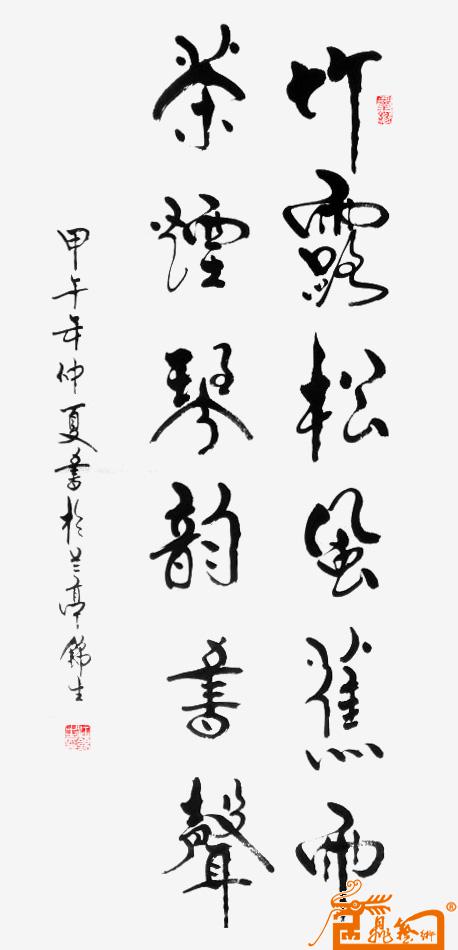 竹露松風蕉雨
茶煙琴韵書聲
甲午年仲夏書於兰亭錦生